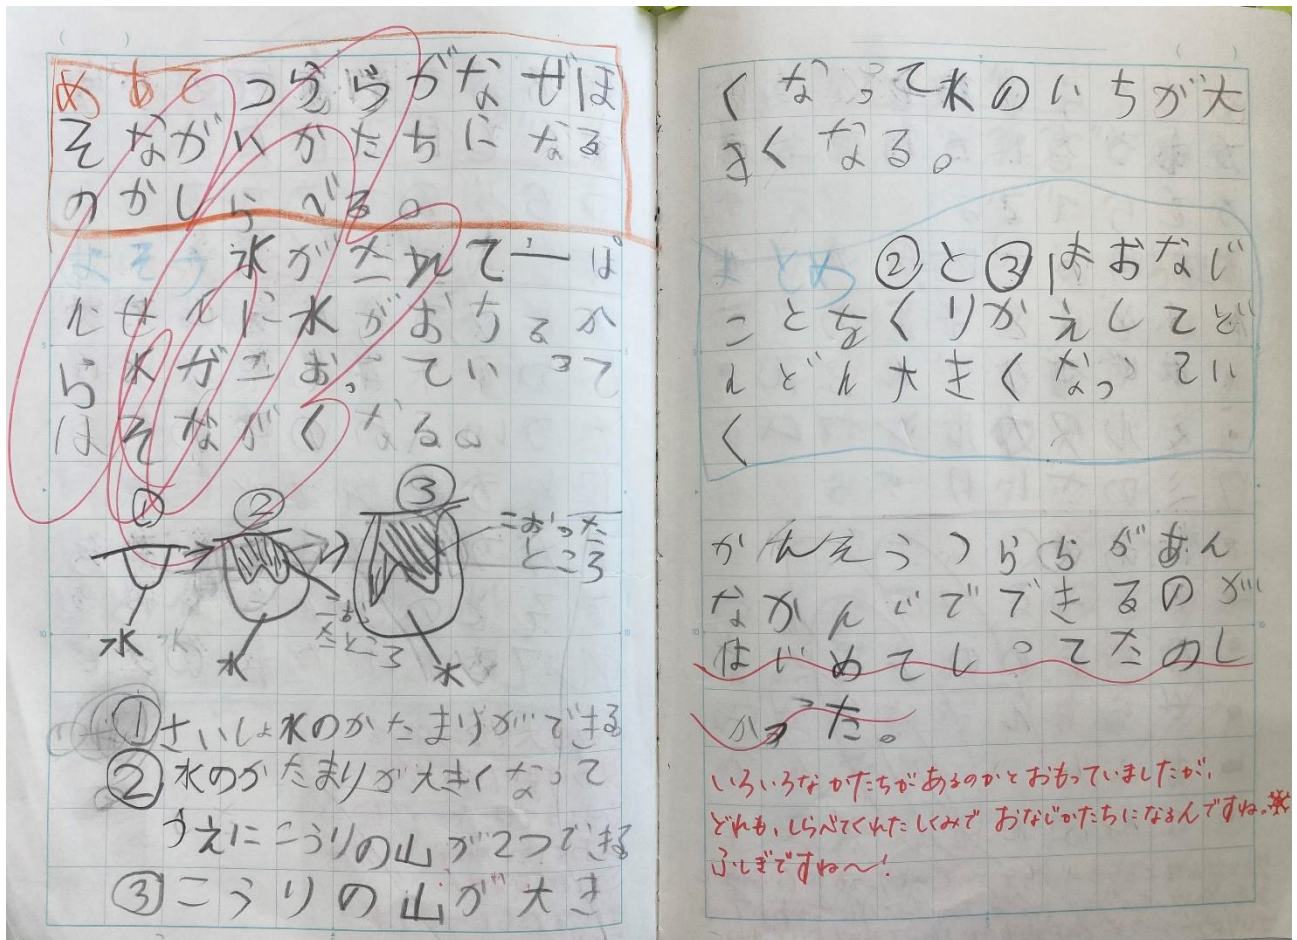 めあて つららがなぜほ
そながいかたちになる
のかしらべる。
よそう 水がたれて一ぱ
んせんに水がおちるか
ら水がこおっていって
ほそながくなる。
① ② ③
こおった
ところ
こおっ
たところ
水 水 水
①さいしょ水のかたまりができる
②水のかたまりが大きくなって
うえにこうりの山が2つできる
③こうりの山が大き
くなって水のいちが大
きくなる。
まとめ ②と③はおなじ
ことをくりかえしてど
んどん大きくなってい
く
かんそうつららがあん
なかんじでできるのが
はじめてしってたのし
かった。
いろいろなかたちがあるのかとおもっていましたが、
どれも、しらべてくれたしくみでおなじかたちになるんですね。
ふしぎですね〜!